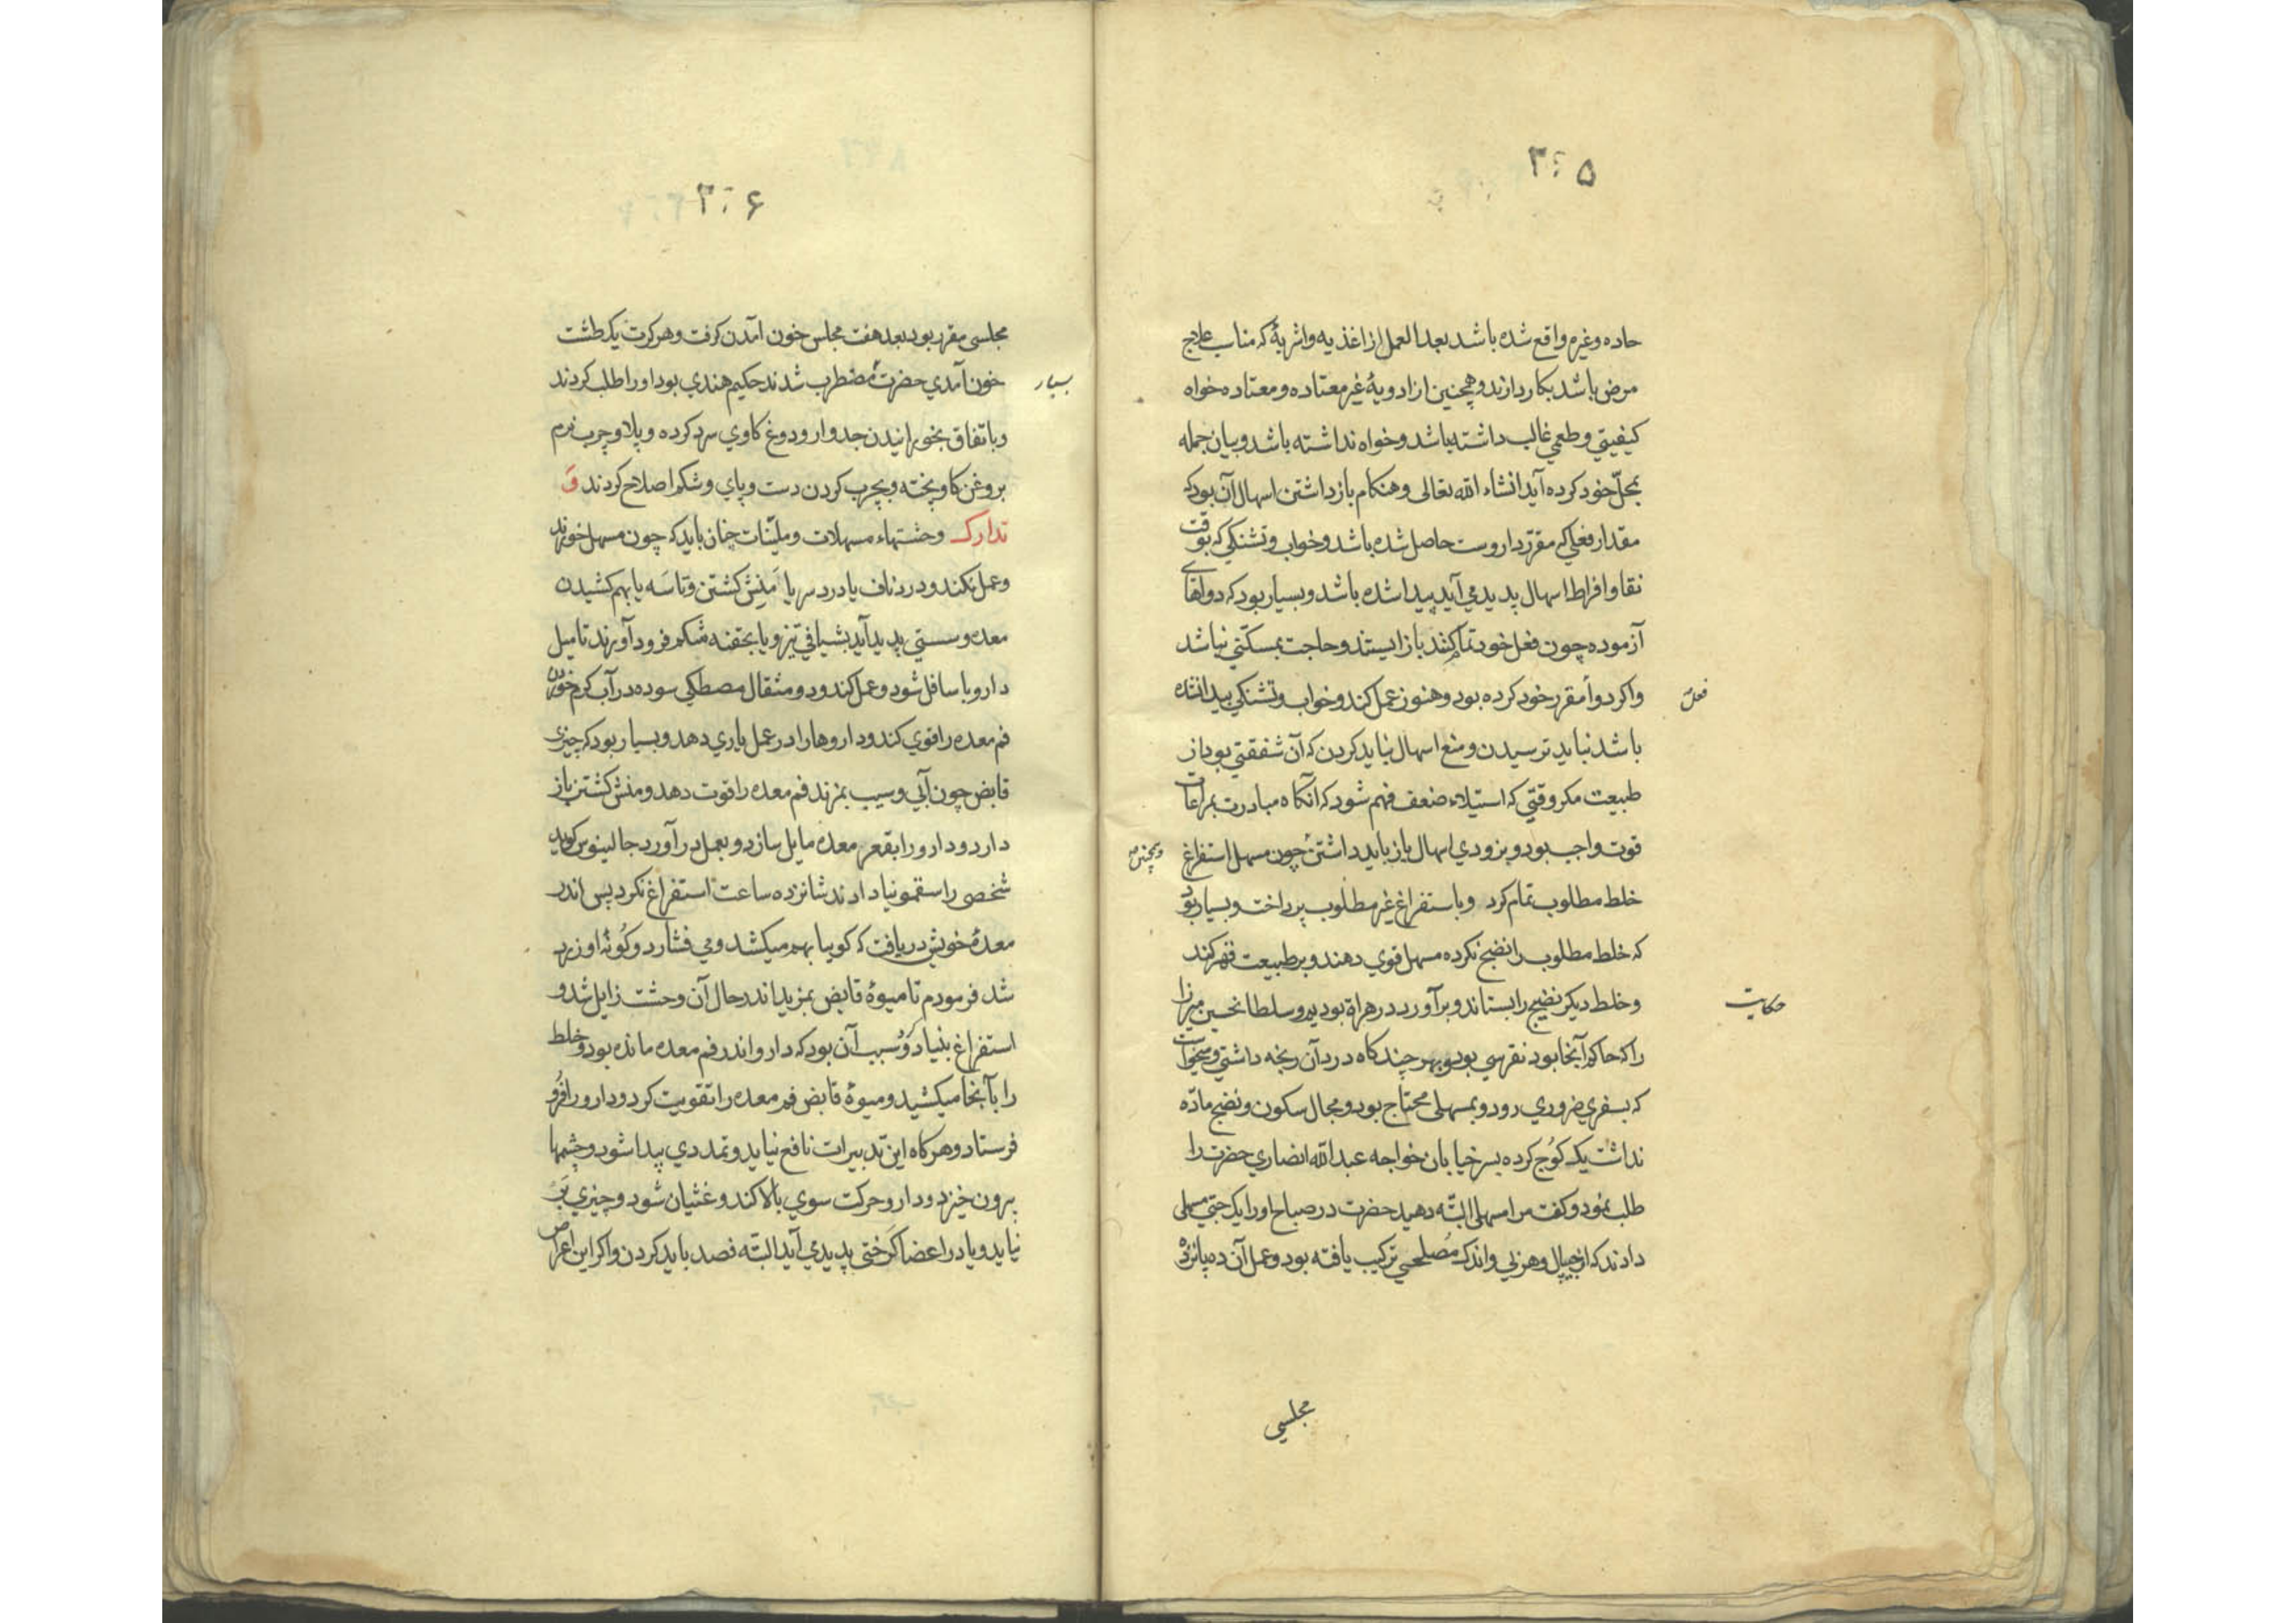 ۳۰۵
حاده وغیره واقع شده باشد بعد العمل از اغذیه واشربهٔ که مناسب علاج
مرض باشد بکار دارند وهمچنین از ادویهٔ غیر معتاده ومعتاده خواه
کیفیتی وطعمی غالب داشته باشد وخواه نداشته باشد وبیان جمله
بمحلّ خود کرده آید انشاء الله تعالی وهنکام باز داشتن اسهال آن بود که
مقدار فعلی که مقرّر داروست حاصل شده باشد وخواب وتشنکی که بوقت
نقا وافراط اسهال پدید می آید پیدا شده باشد وبسیار بود که دواهای
آزموده چون فعل خود تمام کنند باز ایستند وحاجت بمسکّنی نباشد
واکر دوا مقرر خود کرده بود وهنوز عمل کند وخواب وتشنکی پیدا نشده
فعل
باشد نباید ترسیدن ومنع اسهال نباید کردن که آن شفقتی بود از
طبیعت مکر وقتی که استیلاء ضعف فهم شود که آنکاه مبادرت بمراعات
قوت واجب بود وبزودی اسهال باز باید داشتن چون مسهل استفراغ
وهمچنین
خلط مطلوب تمام کرد وباستفراغ غیر مطلوب پرداخت وبسیار بود
که خلط مطلوب را نضج نکرده مسهل قوی دهند وبر طبیعت قهر کند
وخلط دیکر نضیج را بستاند وبرآورد در هراة بودیم وسلطان حسین میرزا
حکایت
را که حاکم آنجا بود نقرسی بود وبهر چند کاه در د آن رنجه داشتی ومیخواست
که بسفری ضروری رود وبمسهلی محتاج بود ومجال سکون ونضج مادّه
نداشت یک کوُچ کرده بسر خیابان خواجه عبد الله انصاری حضرت را
طلب نمود وکفت مرا مسهلی البتّه دهید حضرت در صباح او را یک حبّی مسهلی
دادند که از جیپال وهربی واندک مُصلحی ترکیب یافته بود وعمل آن ده پانزده
مجلسی
۳۰۶
مجلسی مقرر بود بعد هفت مجلس خون آمدن کرفت وهر کرت یک طشت
خون آمدی حضرت مضطرب شدند حکیم هندی بود او را طلب کردند
بسیار
وباتفاق بخورانیدن جدوار ودوغ کاوی سرد کرده وپلاو چرب نرم
بروغن کاو پخته وبچرب کردن دست وپای وشکم اصلاح کردند وَ
تدارک وحشتهاء مسهلات وملیّنات چنان باید که چون مسهل خورند
وعمل نکند ودرد ناف یا درد سر یا مَنِش کشتن وتاسَه یا بهم کشیدن
معده وسستی پدید آید بشیافی تیز ویا بحقنه شکم فرود آورند تا میل
دارو باسافل شود وعمل کند ودو مثقال مصطکی سوده در آب کرم خوردن
فم معده را قوی کند وداروها را در عمل یاری دهد وبسیار بود که چیزی
قابض چون آبی وسیب بمزند فم معده را قوت دهد ومنش کشتن باز
دارد ودارو را بقعر معده مایل سازد وبعمل در آورد جالینوس کوید
شخصی را سقمونیا دادند شانزده ساعت استفراغ نکرد پس اندر
معدهٔ خویش دریافت که کویا بهم میکشد ومی فشارد وکُونهٔ او زرد
شد فرمودم تا میوهٔ قابض بمزید اندر حال آن وحشت زایل شد و
استفراغ بنیاد کرد وسبب آن بود که دارو اندر فم معده مانده بود وخلط
را بآنجا میکشید ومیوهٔ قابض فم معده را تقویت کرد ودارو را فرُو
فرستاد وهرکاه این تدبیرات نافع نیاید وتمددی پیدا شود وچشمها
برون خیزد ودارو حرکت سوی بالا کند وغثیان شود وچیزی بَر
نیاید ویا در اعضا کَرَختی پدید می آید البتّه فصد باید کردن واکر این اعراض